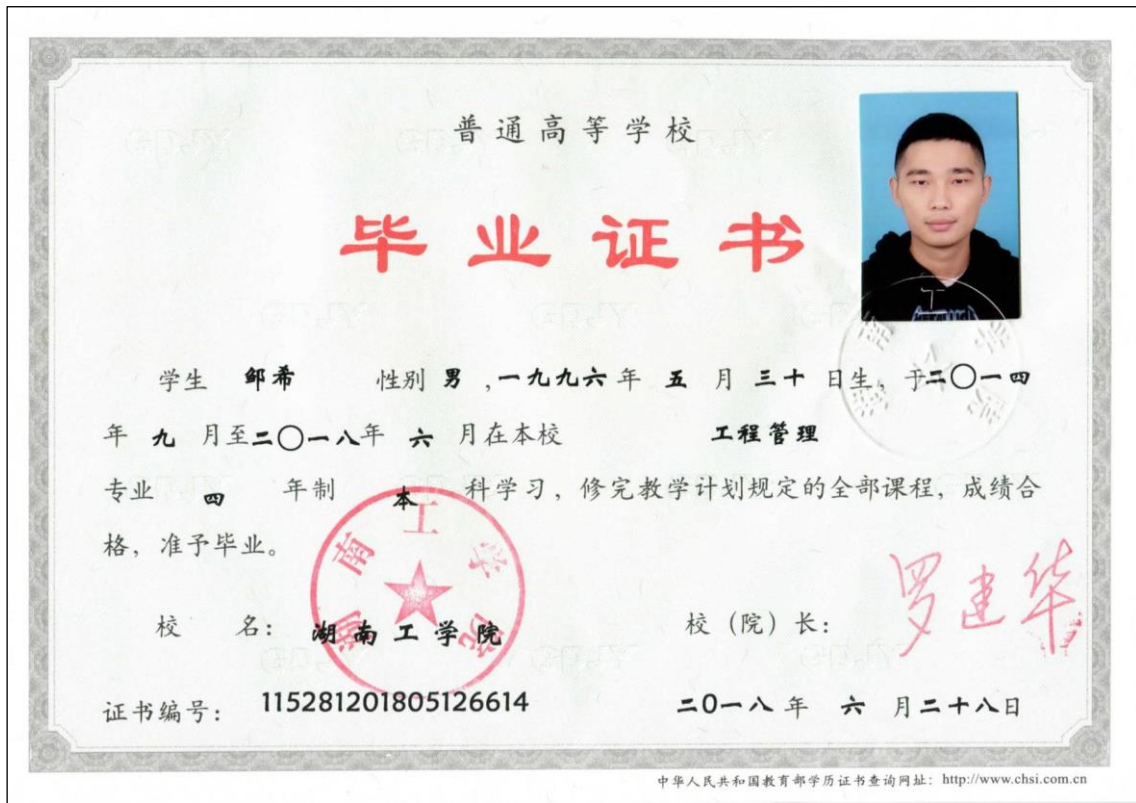 普通高等学校
毕业证书
学生 邹希 性别 男 ,一九九六 年 五 月 三十 日生，于二〇一四
年 九 月至二〇一八年 六 月在本校 工程管理
专业 四 年制 本 科学习，修完教学计划规定的全部课程，成绩合
格，准予毕业。
校 名： 湖南工学院
湖南工学院
校（院）长： 罗建华
证书编号： 115281201805126614
二〇一八 年 六 月二十八日
中华人民共和国教育部学历证书查询网址：http://www.chsi.com.cn